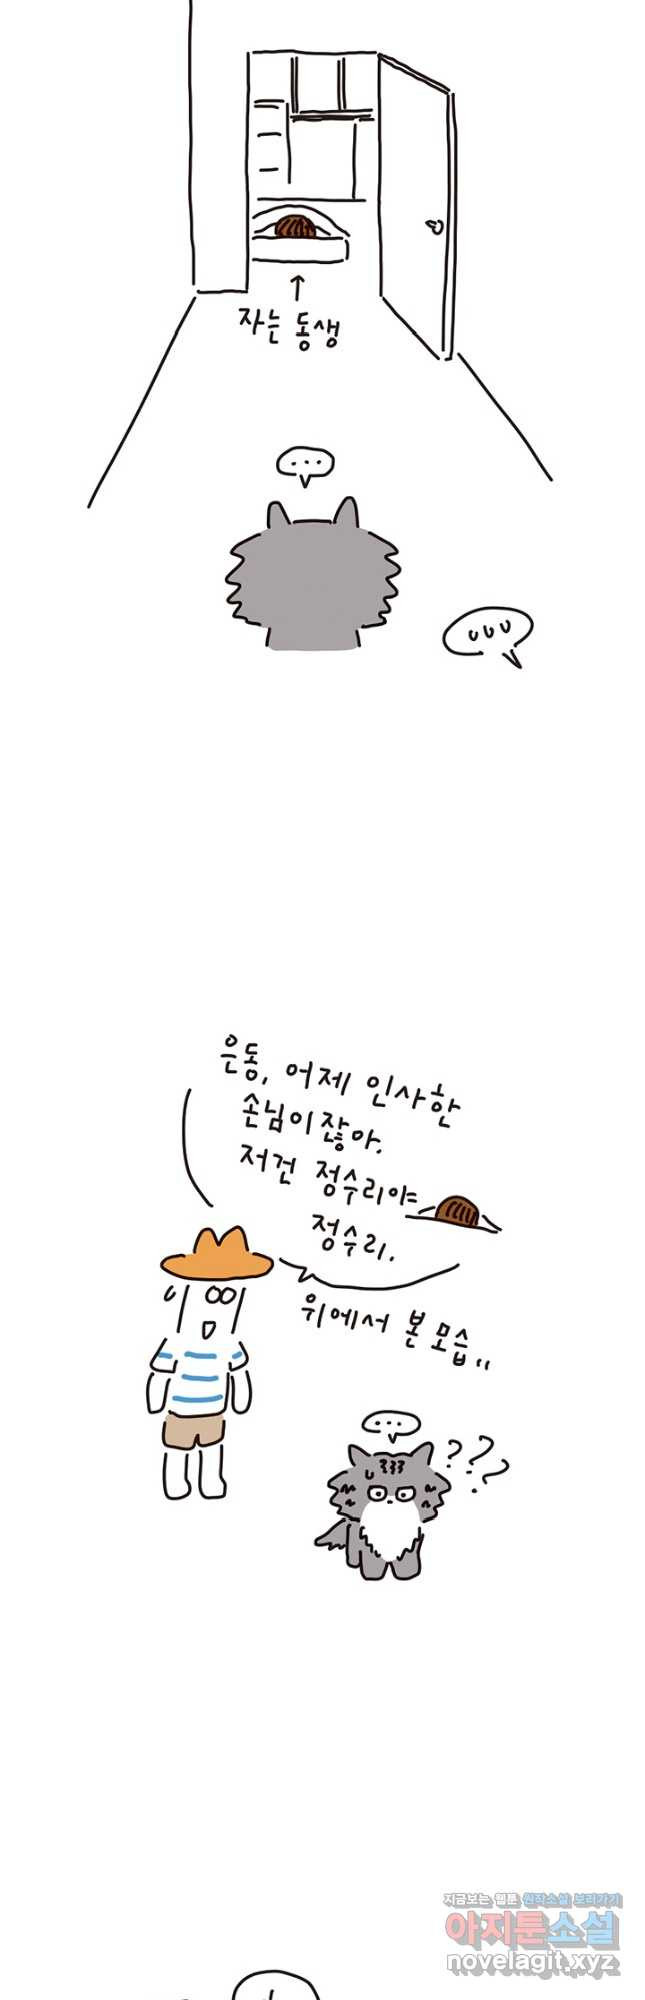 자는 동생
...
은동, 어제 인사한
손님이잖아.
저건 정수리야
정수리.
위에서 본 모습..
...
???
지금보는 웹툰 원작소설 보러가기
아지툰소설
novelagit.xyz